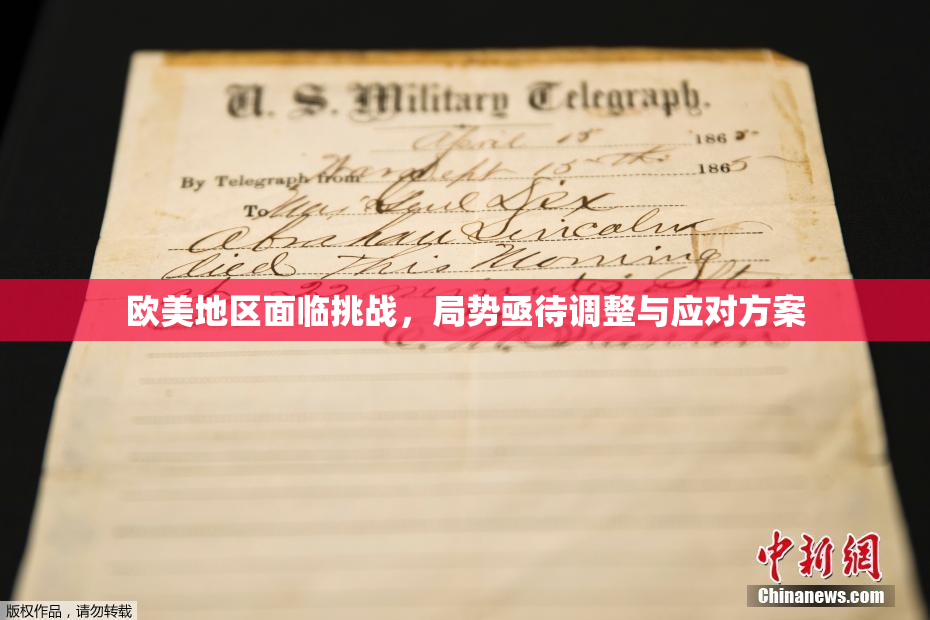 U. S. Military Telegraph.
April 15 1865
By Telegraph from War Dept 15th 1865
To Maj Genl Dix
Abraham Lincoln
died This Morning
at 22 minutes after
欧美地区面临挑战，局势亟待调整与应对方案
E. M. Stanton
中新网
Chinanews.com
版权作品，请勿转载